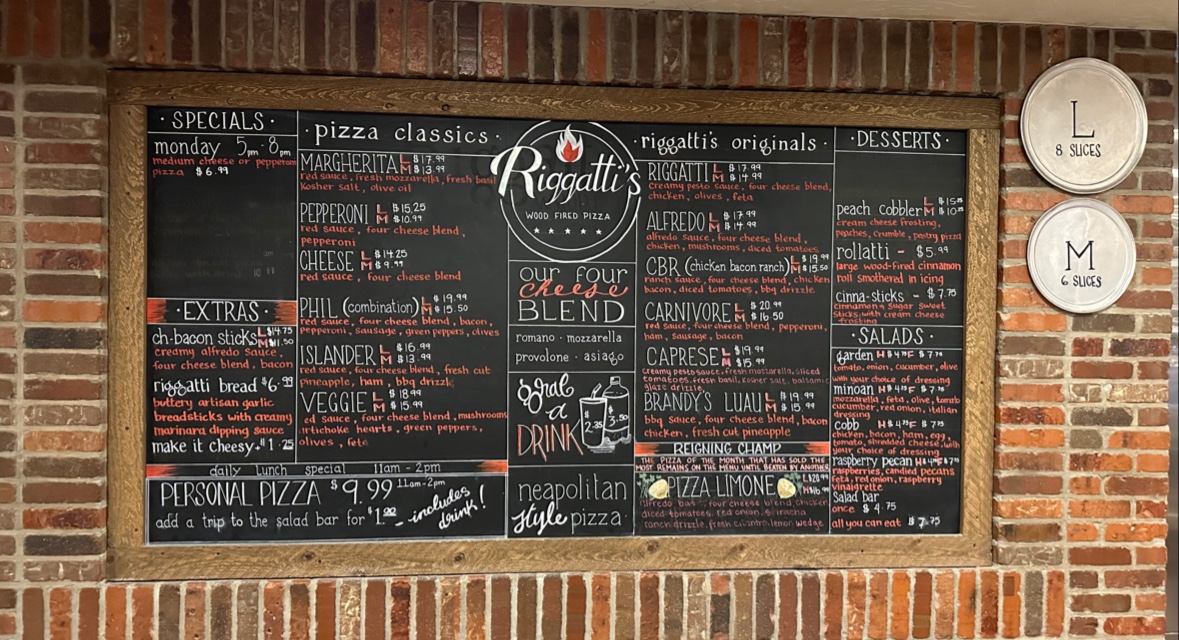 · SPECIALS ·
monday 5pm-8pm
medium cheese or pepperoni
pizza $6.99
· EXTRAS ·
ch-bacon sticks L $14.75
M $11.50
creamy alfredo sauce,
four cheese blend, bacon
riggatti bread $6.99
buttery artisan garlic
breadsticks with creamy
marinara dipping sauce
make it cheesy +$1.25
· pizza classics ·
MARGHERITA L $17.99
M $13.99
red sauce, fresh mozzarella, fresh basil
Kosher salt, olive oil
PEPPERONI L $15.25
M $10.99
red sauce, four cheese blend,
pepperoni
CHEESE L $14.25
M $9.99
red sauce, four cheese blend
PHIL (combination) L $19.99
M $15.50
red sauce, four cheese blend, bacon,
pepperoni, sausage, green peppers, olives
ISLANDER L $16.99
M $13.99
red sauce, four cheese blend, fresh cut
pineapple, ham, bbq drizzle
VEGGIE L $18.99
M $15.99
ed sauce, four cheese blend, mushrooms
artichoke hearts, green peppers,
olives, feta
daily lunch special 11am-2pm
PERSONAL PIZZA $9.99 11am-2pm
add a trip to the salad bar for $1.00 - includes
drink!
Riggatti's
WOOD FIRED PIZZA
our four
cheese
BLEND
romano · mozzarella
provolone · asiago
grab
a
DRINK
$2.35
$3.50
neapolitan
style pizza
· riggatti's originals ·
RIGGATTI L $17.99
M $14.99
Creamy pesto sauce, four cheese blend,
chicken, olives, feta
ALFREDO L $17.99
M $14.99
alfredo sauce, four cheese blend,
chicken, mushrooms, diced tomatoes
CBR (chicken bacon ranch) L $19.99
M $15.50
ranch sauce, four cheese blend, chicken
bacon, diced tomatoes, bbq drizzle
CARNIVORE L $20.99
M $16.50
red sauce, four cheese blend, pepperoni,
ham, sausage, bacon
CAPRESE L $19.99
M $15.99
creamy pesto sauce, fresh mozzarella, sliced
tomatoes, fresh basil, kosher salt, balsamic
glaze drizzle
BRANDY'S LUAU L $19.99
M $15.99
bbq sauce, four cheese blend, bacon
chicken, fresh cut pineapple
REIGNING CHAMP
THE PIZZA OF THE MONTH THAT HAS SOLD THE
MOST REMAINS ON THE MENU UNTIL BEATEN BY ANOTHER
PIZZA LIMONE
alfredo base, four cheese blend, chicken
diced tomatoes, red onion, sriracha
ranch drizzle, fresh cilantro, lemon wedge
· DESSERTS ·
peach cobbler L
M
cream cheese frosting,
peaches, crumble, pastry pizza
rollatti - $5.99
large wood-fired cinnamon
roll smothered in icing
cinna-sticks - $7.75
cinnamon & sugar sweet
sticks with cream cheese
frosting
· SALADS ·
garden H $4.75 F $7.75
tomato, onion, cucumber, olive
with your choice of dressing
minoan H $4.75 F $7.75
mozzarella, feta, olive, tomato
cucumber, red onion, italian
dressing
cobb H $4.75 F $7.75
chicken, bacon, ham, egg,
tomato, shredded cheese, with
your choice of dressing
raspberry pecan H $4.75 F $7.75
raspberries, candied pecans
feta, red onion, raspberry
vinaigrette
Salad bar
once $4.75
all you can eat $7.75
L
8 SLICES
M
6 SLICES